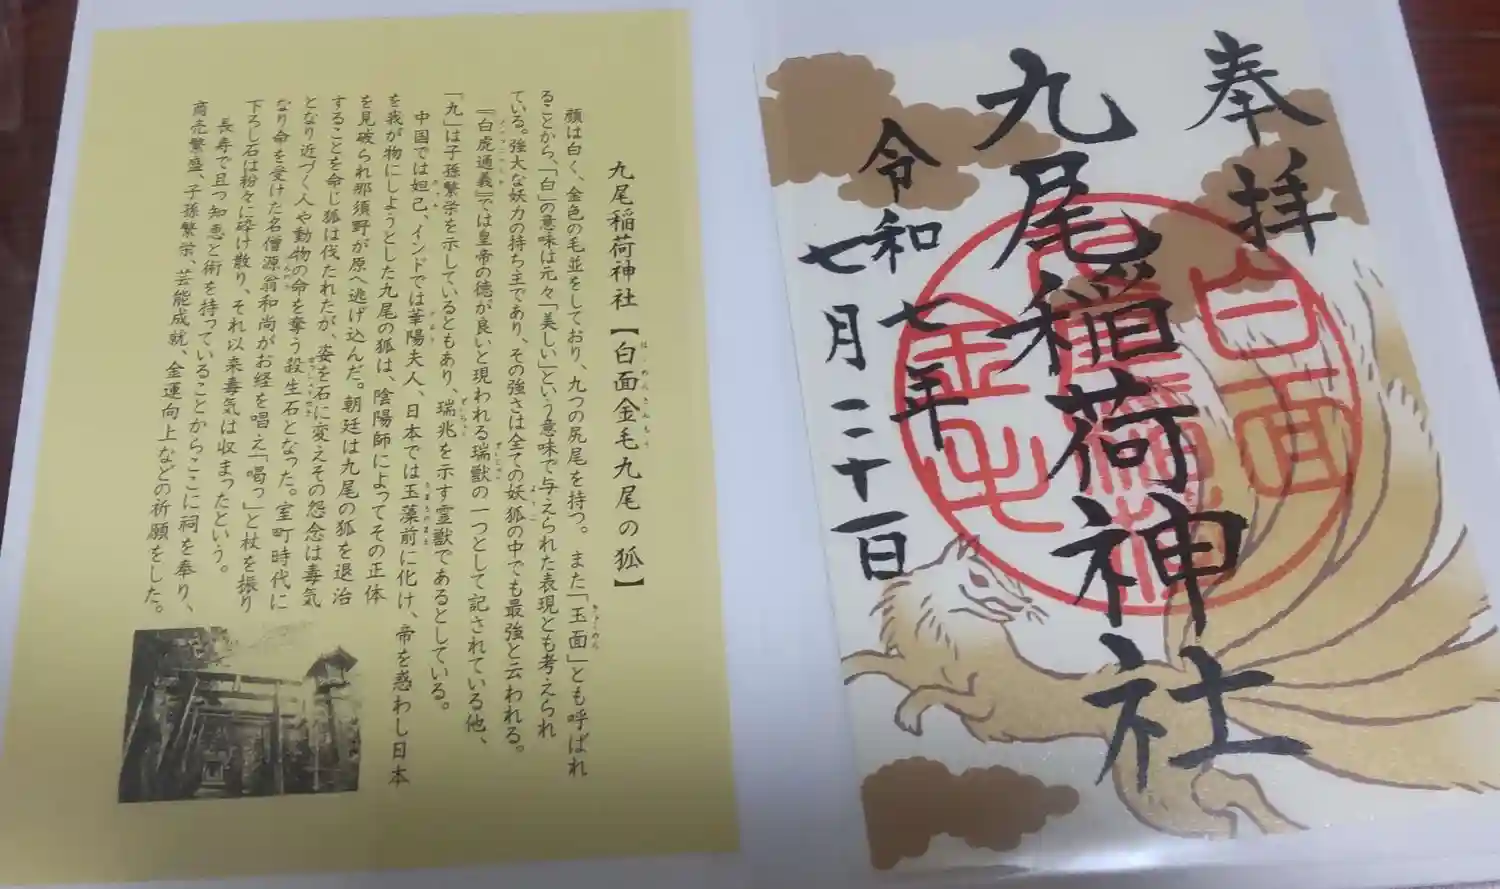 奉拝
九尾稲荷神社
令和七年
七月二十一日
白面
九尾稲荷
金毛
九尾稲荷神社【白面金毛九尾の狐】
はくめんきんもう
顔は白く、金色の毛並をしており、九つの尻尾を持つ。また「玉面」とも呼ばれ
ぎょくめん
ることから、「白」の意味は元々「美しい」という意味で与えられた表現とも考えられ
ている。強大な妖力の持ち主であり、その強さは全ての妖狐の中でも最強と云われる。
ようこ
『白虎通義』では皇帝の徳が良いと現われる瑞獣の一つとして記されている他、
ずいじゅう
「九」は子孫繁栄を示しているともあり、瑞兆を示す霊獣であるとしている。
中国では妲己、インドでは華陽夫人、日本では玉藻前に化け、帝を惑わし日本
たまものまえ
を我が物にしようとした九尾の狐は、陰陽師によってその正体
を見破られ那須野が原へ逃げ込んだ。朝廷は九尾の狐を退治
することを命じ狐は伐たれたが、姿を石に変えその怨念は毒気
となり近づく人や動物の命を奪う殺生石となった。室町時代に
せっしょうせき
なり命を受けた名僧源翁和尚がお経を唱え「喝っ」と杖を振り
げんのう
下ろし石は粉々に砕け散り、それ以来毒気は収まったという。
長寿で且つ知恵と術を持っていることからここに祠を奉り、
商売繁盛、子孫繁栄、芸能成就、金運向上などの祈願をした。